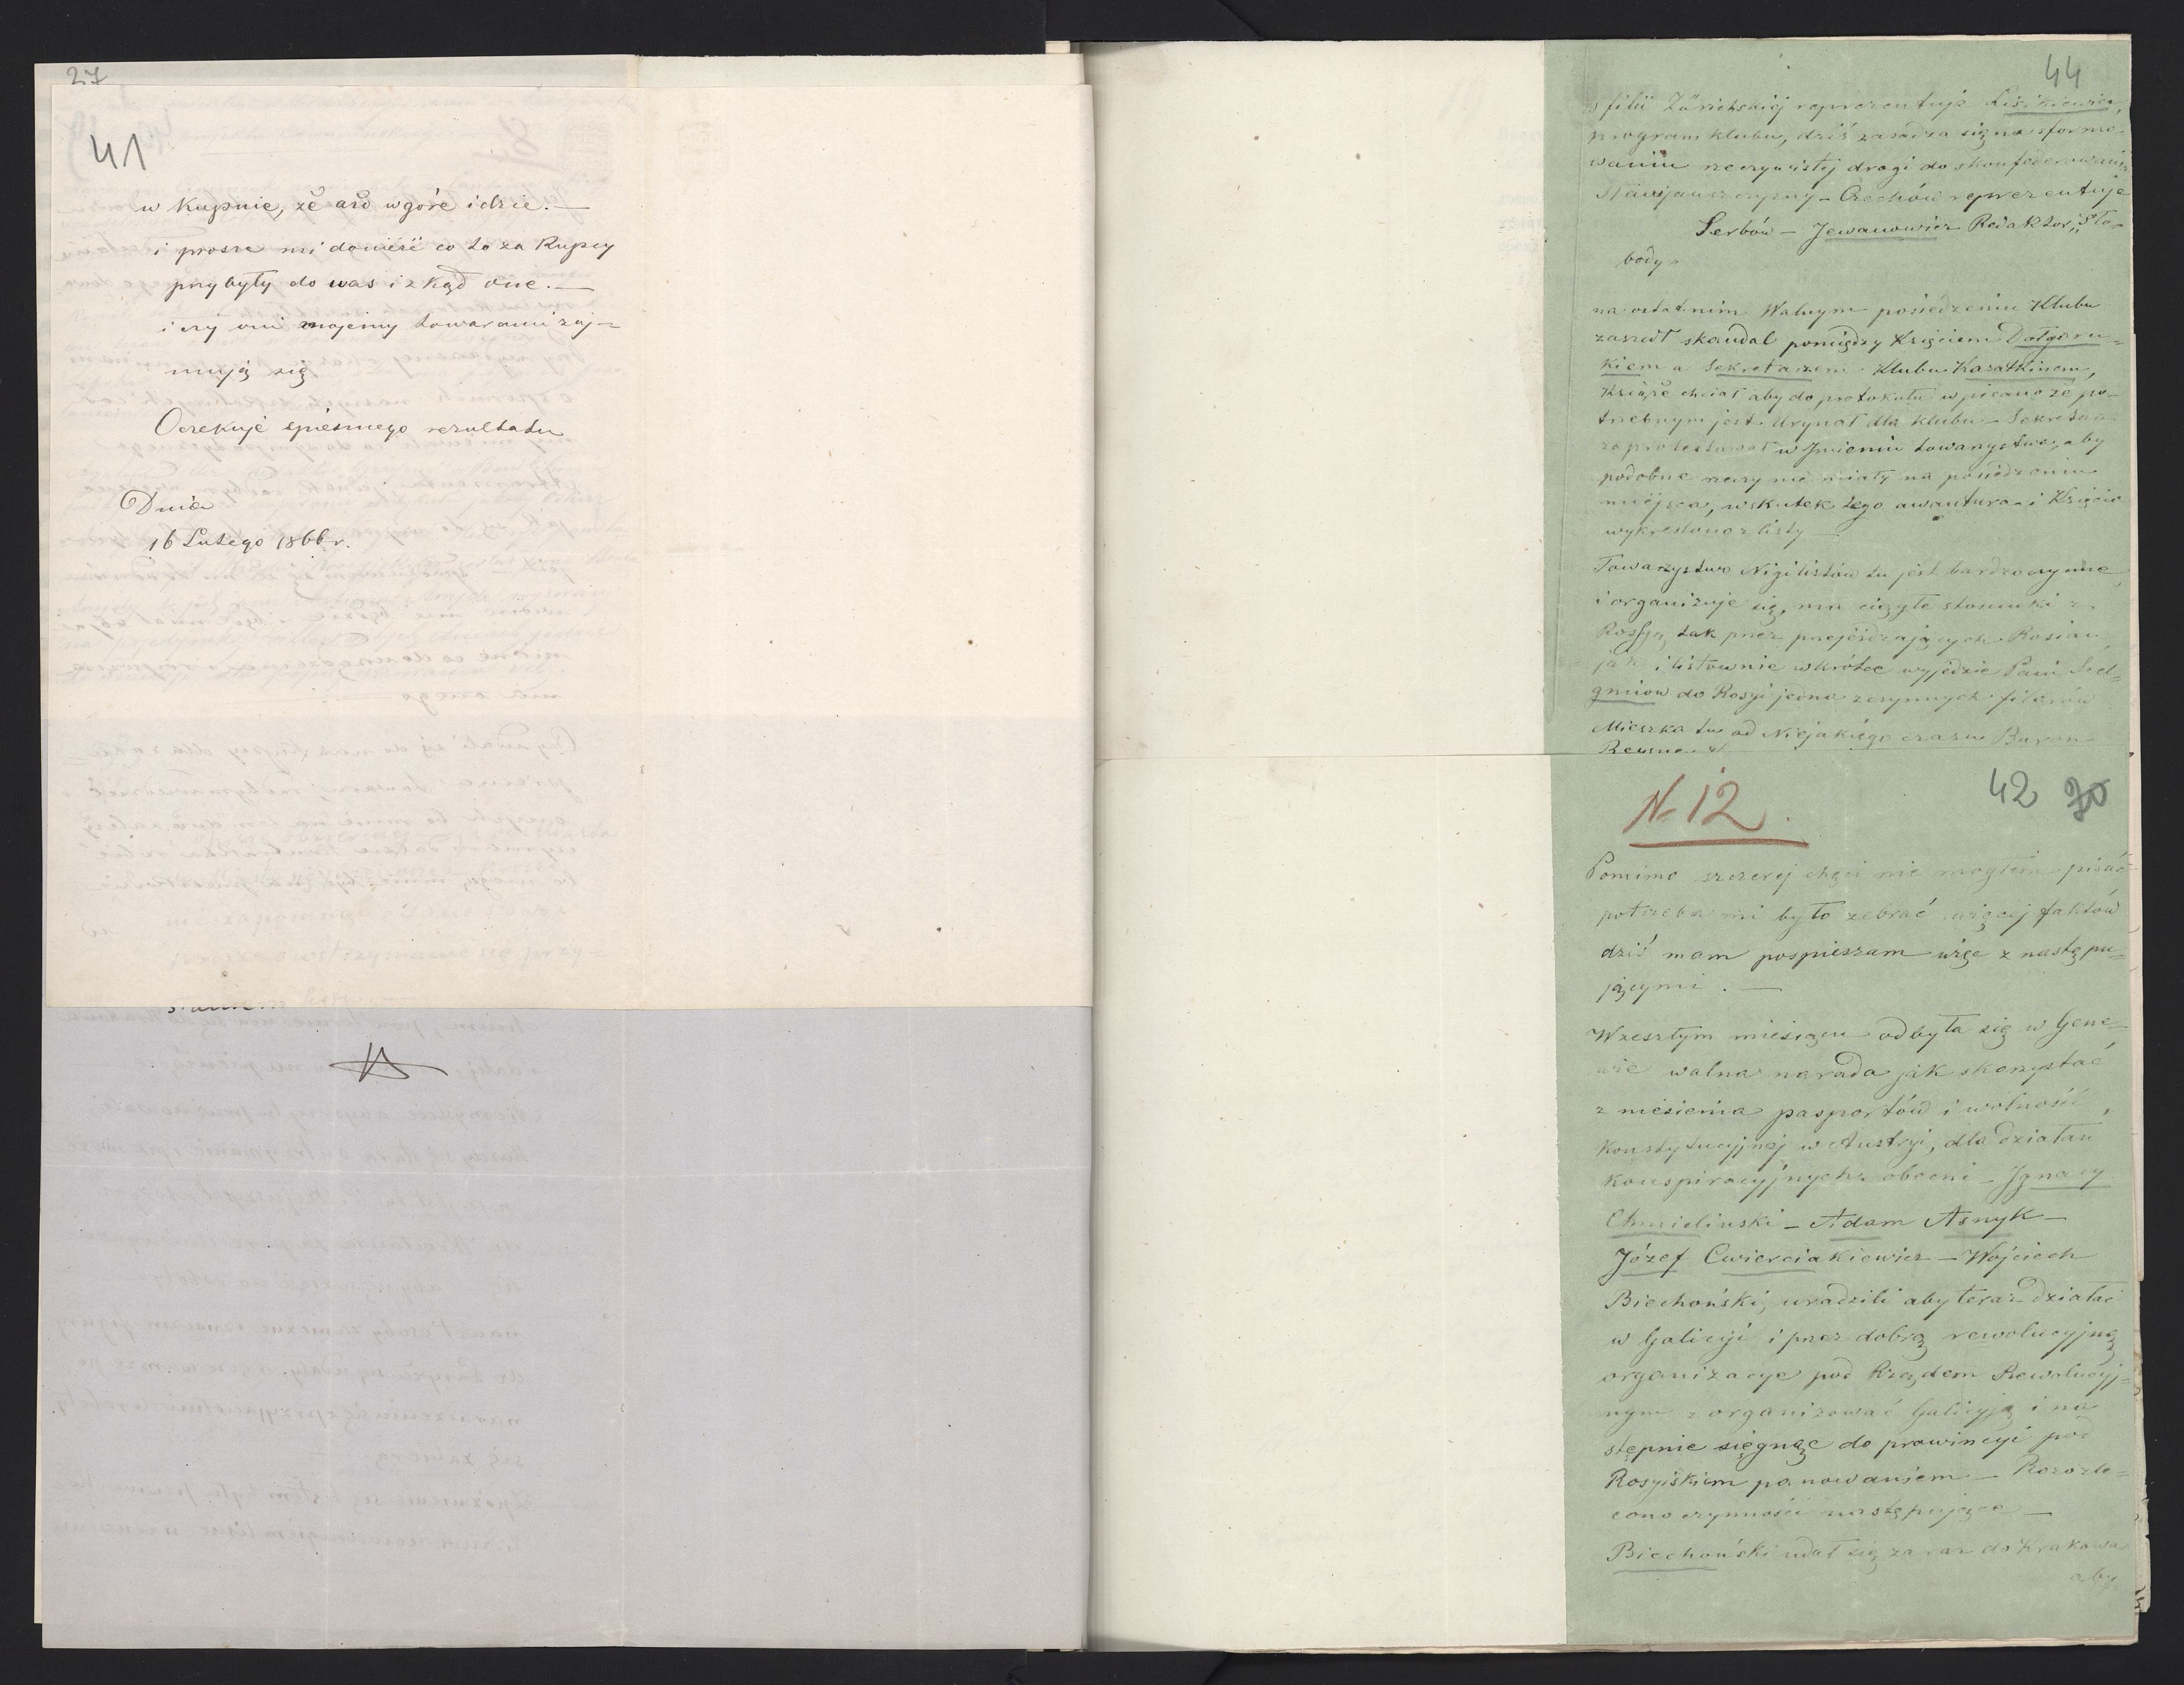 27
41
w kupnie, że aż w górę idzie. —
i proszę mi donieść co to za kupcy
przybyły do was i zkąd one. —
i czy oni mojemy towarami zaj=
mują się
Oczekuję spiesznego rezultatu
Dnia
16 Lutego 1866 r.
44
s filii Zürichskiej reprezentuje
program klubu, dziś zasadza się na sformo-
waniu rzeczywistej drogi do skonfederowania
Czechów reprezentuje
Serbów — Jewanowicz Redaktor „Sło-
body„
na ostatnim Walnym posiedzeniu Klubu
zaszedł skandal pomiędzy Księciem Dołgoru=
kiem a Sekretarzem Klubu Kasatkinem,
Książe chciał aby do protokułu wpisano że po-
trzebnym jest Urynał dla klubu — Sekretarz
zaprotestował w Imieniu towarzystwa, aby
podobne rzeczy nie miały na posiedzeniu
miejsca, wskutek tego awantura i Księcia
wykreslono z listy —
Towarzystwo Nigilistów tu jest bardzo czynne,
i organizuje się, ma ciągłe stosunki z
Rossyą, tak przez przejeżdzających Rosian
jak i listownie wkrótce wyjedzie Pani
do Rosyi jedna z czynnych filarów
Mieszka tu od Niejakiego czasu Baron
N. 12.
42 70
Pomimo szczerej chęci nie mogłem pisać
potrzeba mi było zebrać więcej faktów
dziś mam pospieszam więc z następu=
jącymi. —
W zeszłym miesiącu odbyła się w Gene-
wie walna narada jak skorzystać
z niesienia pasportów i wolności,
konstytucyjnej w Austryi, dla działań
konspiracyjnych obecni — Ignacy
Chmieliński — Adam Asnyk —
Józef Cwierciakiewicz — Wojciech
Biechoński, uradzili aby teraz działać
w Galicyi i przez dobrą rewolucyjną
organizacye pod Rządem Rewolucyj=
nym zorganizować Galicyją i na
stępnie sięgnąc do prowincyi pod
Rosyiskiem panowaniem — Rozozle=
cono czynności następujące —
Biechoński udał się zaraz do Krakowa
aby